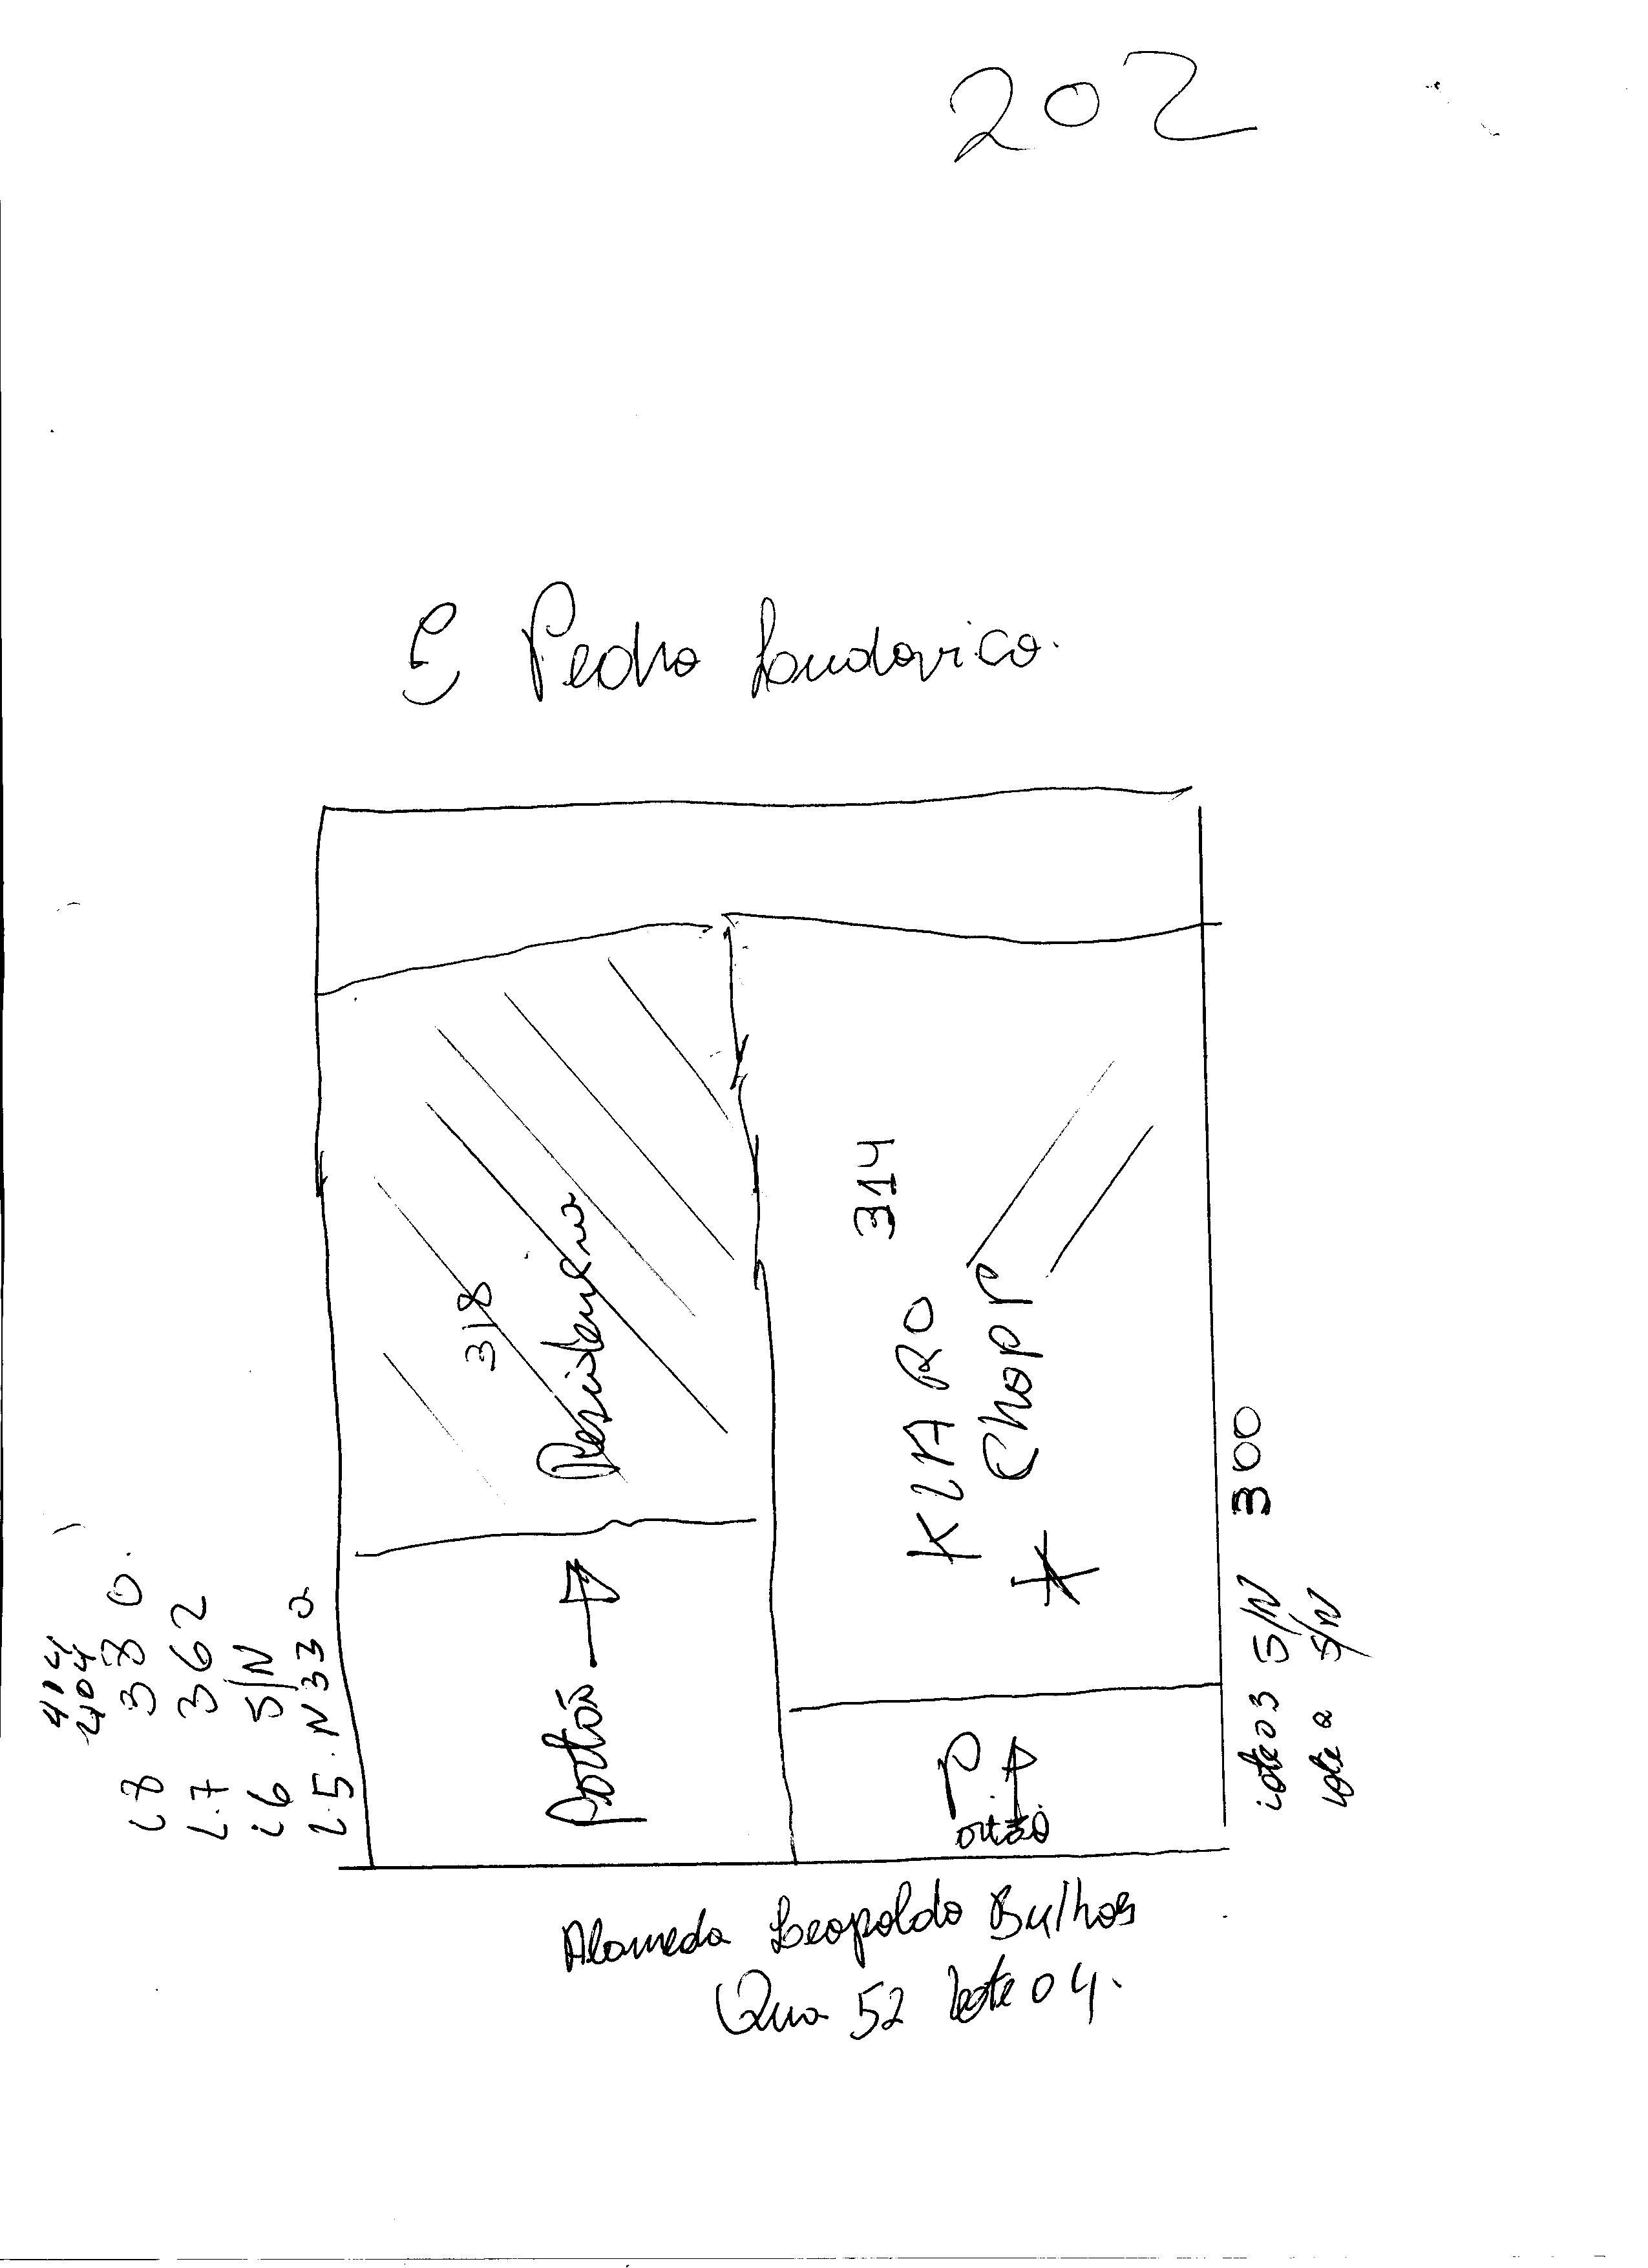 202
S Pedro Ludovico.
318
Residencia
314
KLARO
Chopp
Portão
Portão
414
404
L8 380.
L.7 362
L6 S/N
L.5. N330
lote 03 S/N 300
lote 2 S/N
Alameda Leopoldo Bulhos
Qua 52 lote 04.